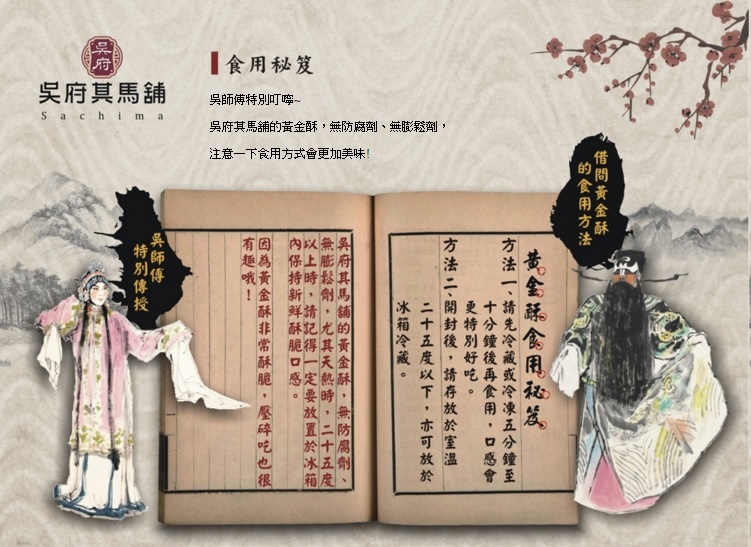 吳府
吳府其馬舖
Sachima
食用秘笈
吳師傅特別叮嚀~
吳府其馬舖的黃金酥，無防腐劑、無膨鬆劑，
注意一下食用方式會更加美味!
借問黃金酥
的食用方法
黃金酥食用秘笈
方法一、請先冷藏或冷凍五分鐘至
十分鐘後再食用，口感會
更特別好吃。
方法二、開封後，請存放於室溫
二十五度以下，亦可放於
冰箱冷藏。
吳府其馬舖的黃金酥，無防腐劑、
無膨鬆劑，尤其天熱時，二十五度
以上時，請記得一定要放置於冰箱
內保持新鮮酥脆口感。
因為黃金酥非常酥脆，壓碎吃也很
有趣哦！
吳師傅
特別傳授